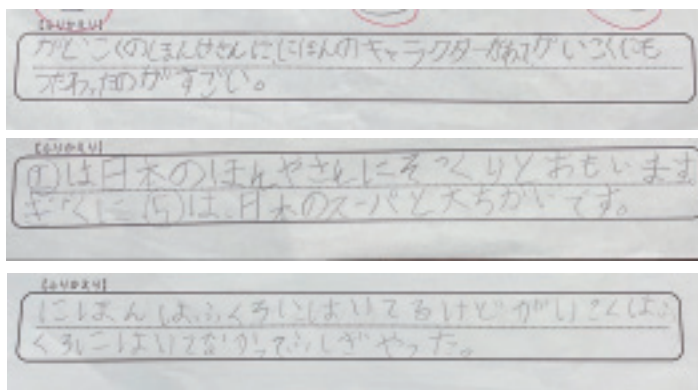 【ふりかえり】
がいこくのほんやさんににほんのキャラクターがあってがいこくにも
つたわったのがすごい。
【ふりかえり】
は日本のほんやさんにそっくりとおもいます
ぎゃくに⑤は、日本のスーパと大ちがいです。
【ふりかえり】
にほんはふくろにはいてるけどがいこくはふ
くろにはいてなかってふしぎやった。